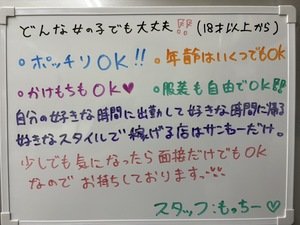 どんな女の子でも大丈夫!! (18才以上から)
・ポッチリOK!! ・年齢はいくつでもOK
・かけもちもOK♥ ・服装も自由でOK!!
自分の好きな時間に出勤して好きな時間に帰る
好きなスタイルで稼げる店はサンキューだけ。
少しでも気になったら面接だけでもOK
なので お待ちしております
スタッフ:もっちー♡